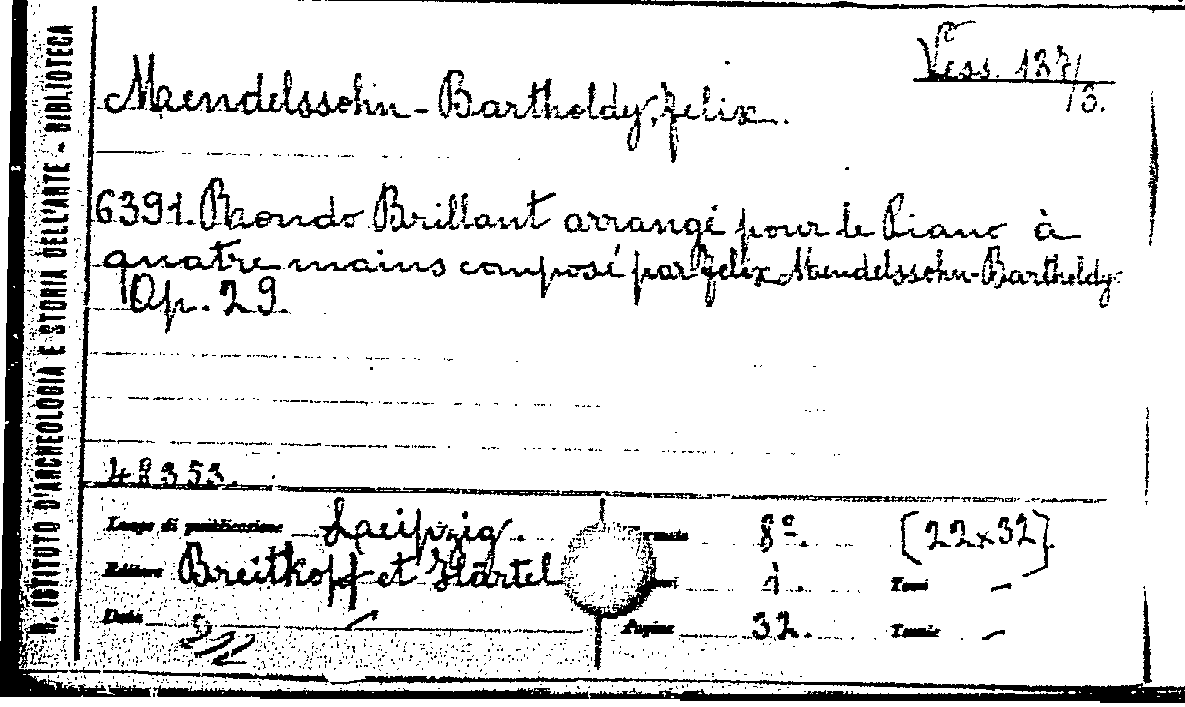 R. ISTITUTO D'ARCHEOLOGIA E STORIA DELL'ARTE - BIBLIOTECA
Vess. 137/
/3.
Mendelssohn-Bartholdy, Felix.
6391. Rondo Brillant arrangé pour le Piano à
quatre mains composé par Felix Mendelssohn-Bartholdy
Op. 29.
48353.
Luogo di pubblicazione Leipzig. 8°. [22x32]
Editore Breitkopf et Härtel 1. Tomi -
Data - Pagine 32. Tavole -